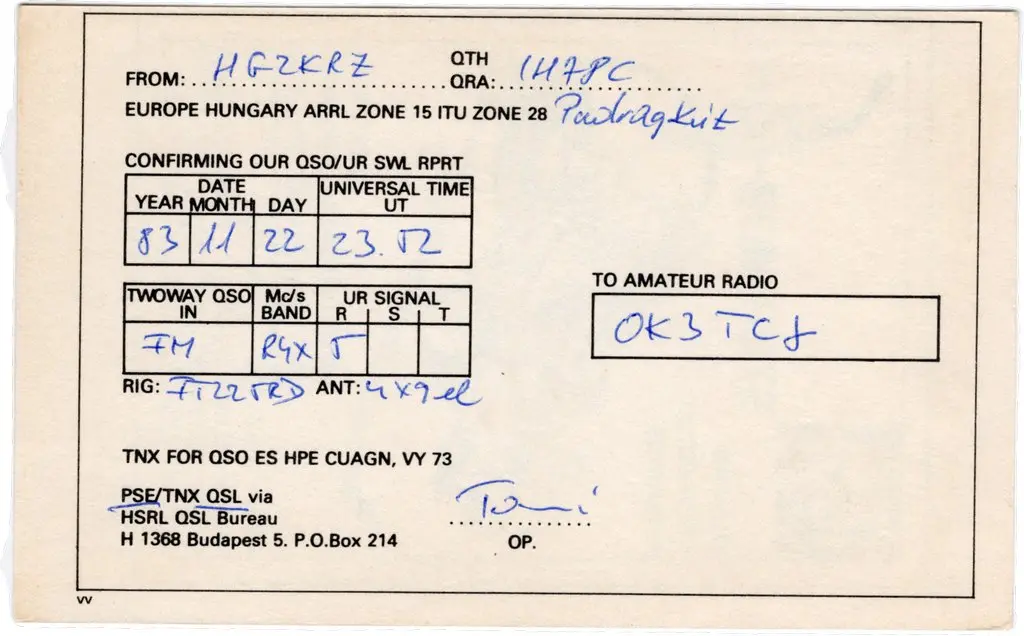 FROM: HG2KRZ QTH
QRA: IH78C
EUROPE HUNGARY ARRL ZONE 15 ITU ZONE 28 Padragkút
CONFIRMING OUR QSO/UR SWL RPRT
DATE UNIVERSAL TIME
YEAR MONTH DAY UT
83 11 22 23.52
TO AMATEUR RADIO
TWOWAY QSO IN Mc/s BAND UR SIGNAL
R S T
FM R4X 5
OK3TCJ
RIG: FT225RD ANT: 4x9el
TNX FOR QSO ES HPE CUAGN, VY 73
PSE/TNX QSL via
HSRL QSL Bureau
Tomi
H 1368 Budapest 5. P.O.Box 214
OP.
VV